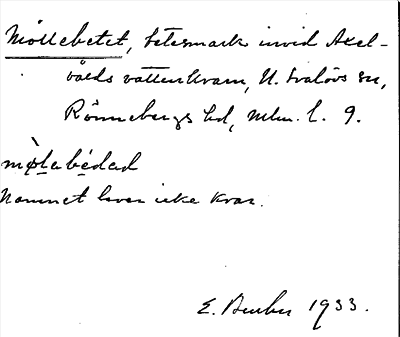 Möllebetet, betesmark invid Axel-
volds vattenkvarn, N. Svalövs sn,
Rönnebergs hd, Mlm. l. 9.
mø̀labedad
Namnet lever icke kvar.
E. 1933.